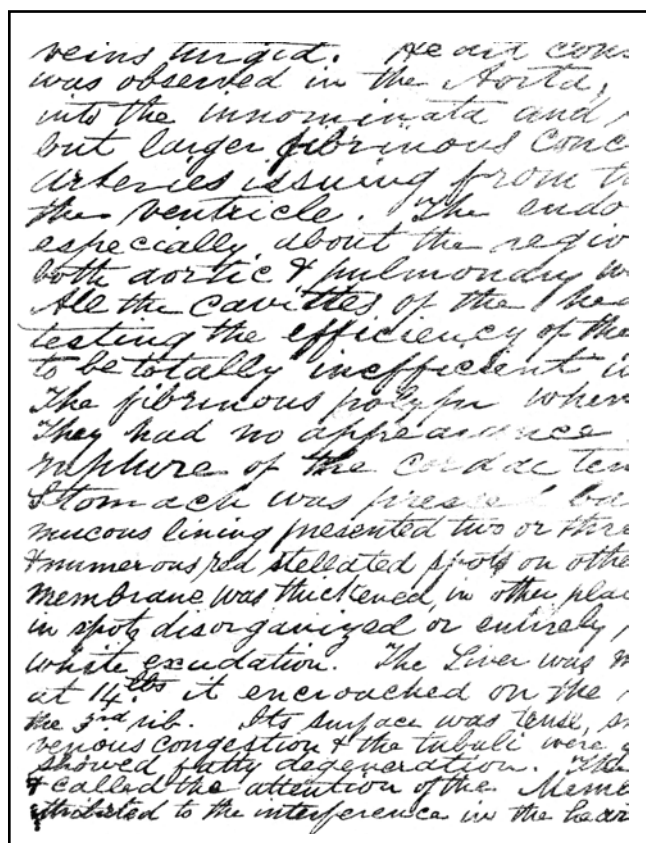 veins turgid. Heart cons
was observed in the Aorta,
into the innominata and
but larger fibrinous conc
arteries issuing from th
the ventricle. The endo
especially about the regio
both aortic & pulmonary w
All the cavities of the hea
testing the efficiency of the
to be totally inefficient i
The fibrinous polypi when
They had no appearance
rupture of the cordae ten
Stomach was presse
mucous lining presented two or thre
& numerous red stellated spots on othe
membrane was thickened, in other plac
in spots disorganized or entirely,
white exudation. The Liver was
at 14 lbs it encroached on the
the 3rd rib. Its surface was tense, sm
venous congestion & the tubuli were
showed fatty degeneration. The
& called the attention of the Meme
attributed to the interference in the heart